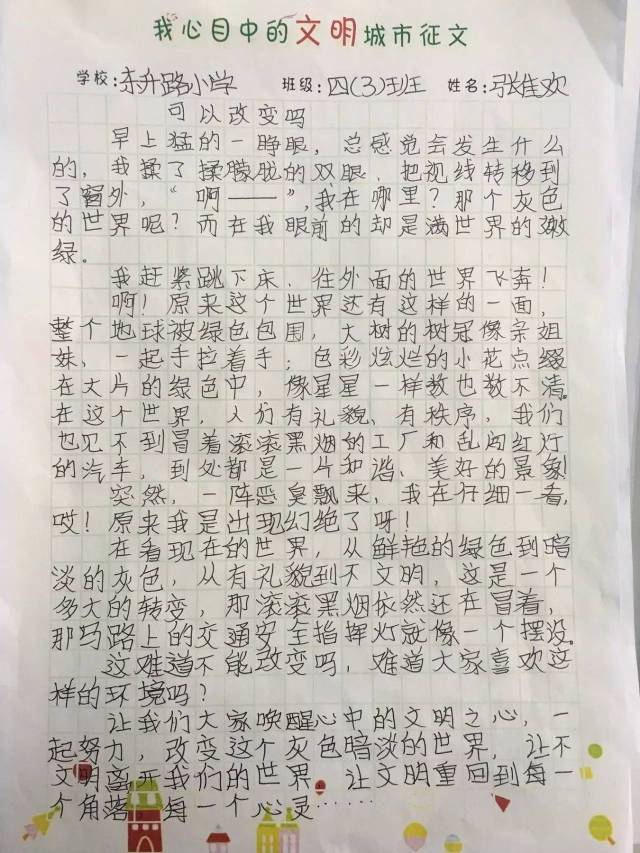 我心目中的文明城市征文
学校:东升路小学 班级:四(3)班 姓名:张佳欢
可以改变吗
早上猛的一睁眼，总感觉会发生什么
的，我揉了揉朦胧的双眼，把视线转移到
了窗外，“啊——”，我在哪里？那个灰色
的世界呢？而在我眼前的却是满世界的嫩
绿。
我赶紧跳下床，往外面的世界飞奔！
啊！原来这个世界还有这样的一面，
整个地球被绿色包围，大树的树冠像亲姐
妹，一起手拉着手；色彩炫烂的小花点缀
在大片的绿色中，像星星一样数也数不清。
在这个世界，人们有礼貌、有秩序，我们
也见不到冒着滚滚黑烟的工厂和乱闯红灯
的汽车，到处都是一片和谐、美好的景象！
突然，一阵恶臭飘来，我在仔细一看，
哎！原来我是出现幻绝了呀！
在看现在的世界，从鲜艳的绿色到暗
淡的灰色，从有礼貌到不文明，这是一个
多大的转变，那滚滚黑烟依然还在冒着，
那马路上的交通安全指挥灯就像一个摆设。
这难道不能改变吗，难道大家喜欢这
样的环境吗？
让我们大家唤醒心中的文明之心，一
起努力，改变这个灰色暗淡的世界，让不
文明离开我们的世界，让文明重回到每一
个角落，每一个心灵……